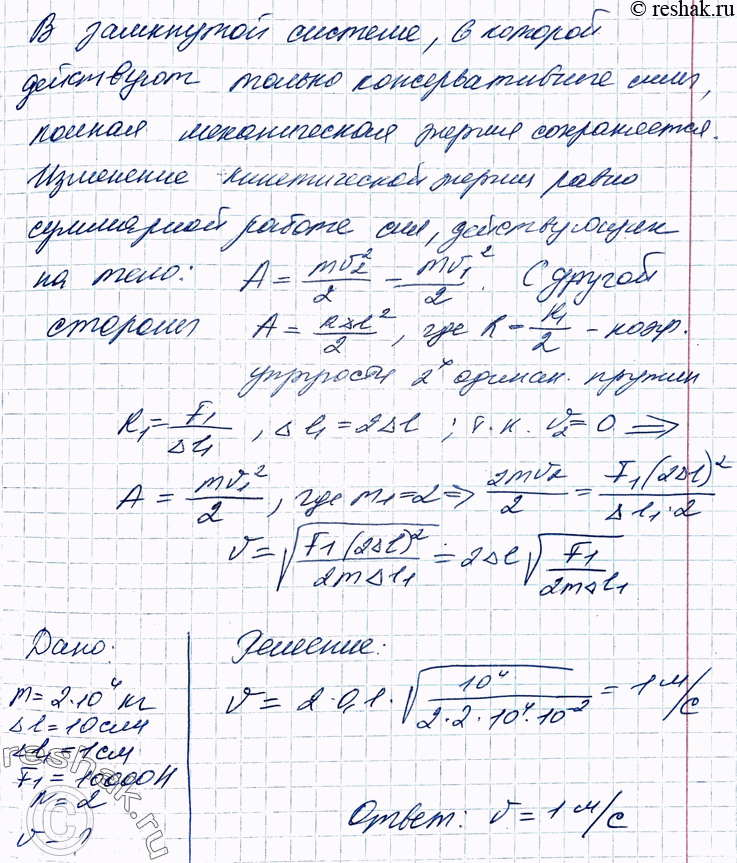 © reshak.ru
В замкнутой системе, в которой
действуют только консервативные силы,
полная механическая энергия сохраняется.
Изменение кинетической энергии равно
суммарной работе сил, действующих
на тело: A = mv₂²/2 - mv₁²/2. С другой
стороны A = kΔl²/2, где k = k₁/2 - коэф.
упругости 2ˣ одинак. пружин
k₁ = F₁/Δl₁, Δl₁ = 2Δl ; т.к. v₂ = 0 ⟹
A = mv₁²/2, где m₁ = 2 ⟹ 2mv²/2 = F₁(2Δl)²/Δl₁·2
v = √(F₁(2Δl)²/2mΔl₁) = 2Δl √(F₁/2mΔl₁)
Дано:
m = 2·10⁴ кг
Δl = 10см
Δl₁ = 1см
F₁ = 10000Н
N = 2
v - ?
Решение:
v = 2·0,1·√(10⁴/2·2·10⁴·10⁻²) = 1 м/с
Ответ: v = 1 м/с
© reshak.ru